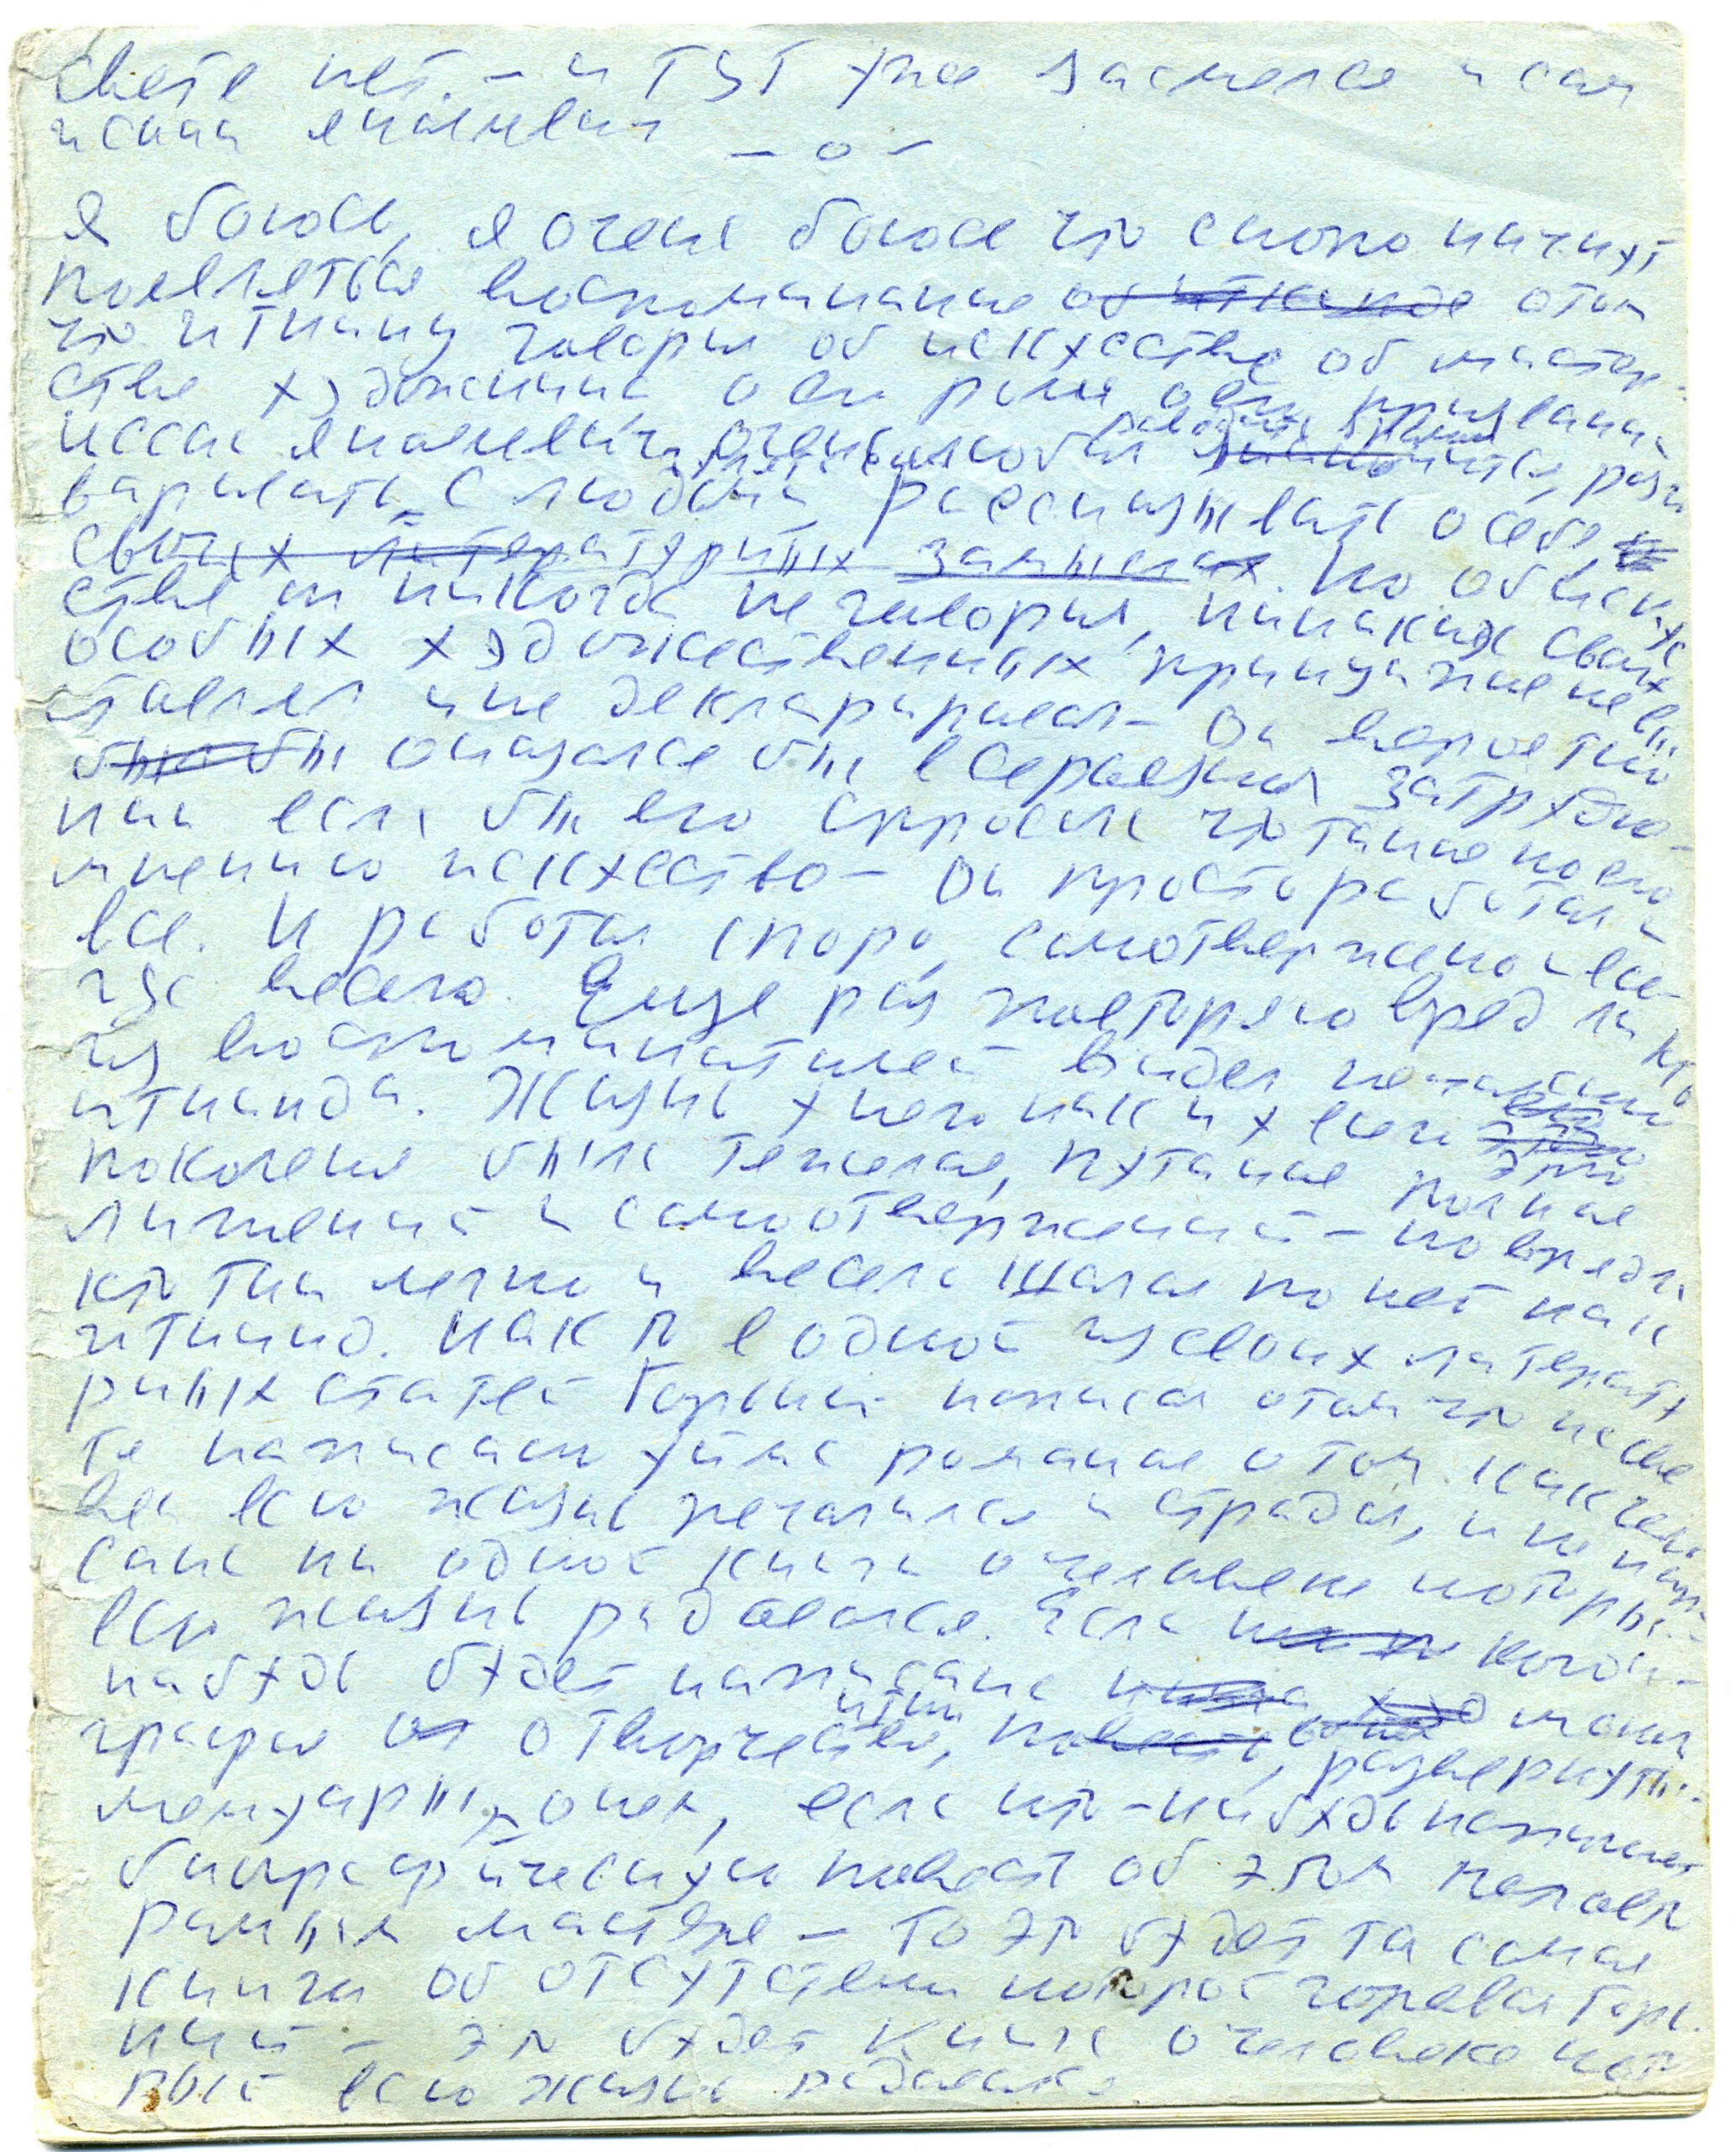 свете нет. – и тут уже засмеялся и сам
Исаак Эммануил
– о –
Я боюсь, я очень боюсь что скоро начнут
появляться воспоминания о том
что Иткинд говорил об искусстве об мастер-
стве художника о его роли о его призвании
Исаак Эммануилович очень любил разго
варивать с людьми рассказывать о себе,
своих литературных замыслах. Но об искус
стве он никогда не говорил, никаких своих
особых художественных принципов не вы
ставлял и не декларировал – Он вероятно
бы оказался бы в серьезном затрудне-
нии если бы его спросили что такое по его
мнению искусство – Он просто работал и
все. И работал споро, самоотверженно и все-
гда весело. Еще раз повторяю вряд ли кто
из воспоминателей видел печального
Иткинда. Жизнь у него как и у всего его
поколения была тяжелая, путаная полная
лишений и самоотвержений – но вряд ли
кто так легко и весело шагал по ней как
Иткинд. Как то в одной из своих литерату
рных статей Горький написал о том что на све
те написаны тома романов о том как чело
век всю жизнь печалился и страдал, и не напи
сано ни одной книги о человеке который
всю жизнь радовался. Если когда-
нибудь будет написана моног
рафия о творчестве, развернутый
мемуарный очерк, если кто-нибудь напишет
биографическую повесть об этом человеке
мастере – то это будет та самая
книга об отсутствии которой горевал Горь
кий – это будет книга о человеке кото
рый всю жизнь радовался.